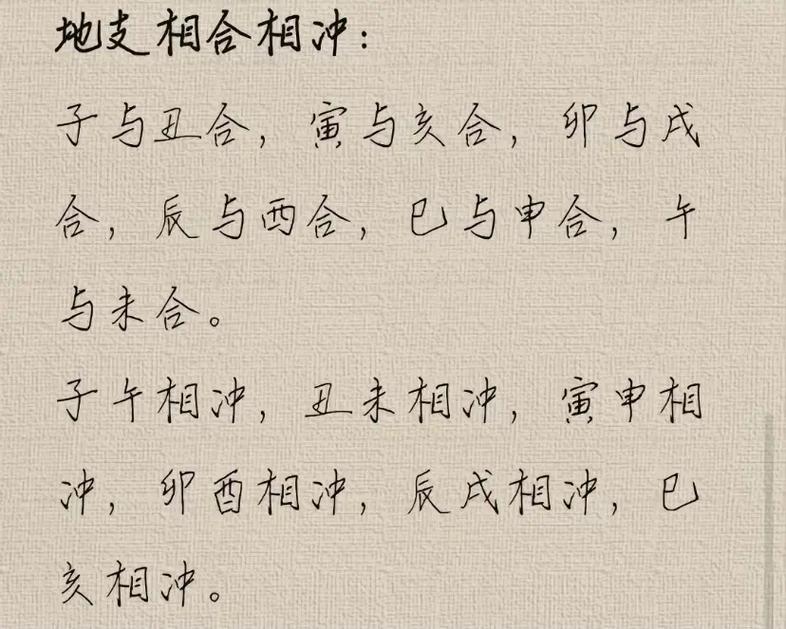 地支相合相冲：
子与丑合，寅与亥合，卯与戌
合，辰与西合，巳与申合，午
与未合。
子午相冲，丑未相冲，寅申相
冲，卯酉相冲，辰戌相冲，巳
亥相冲。